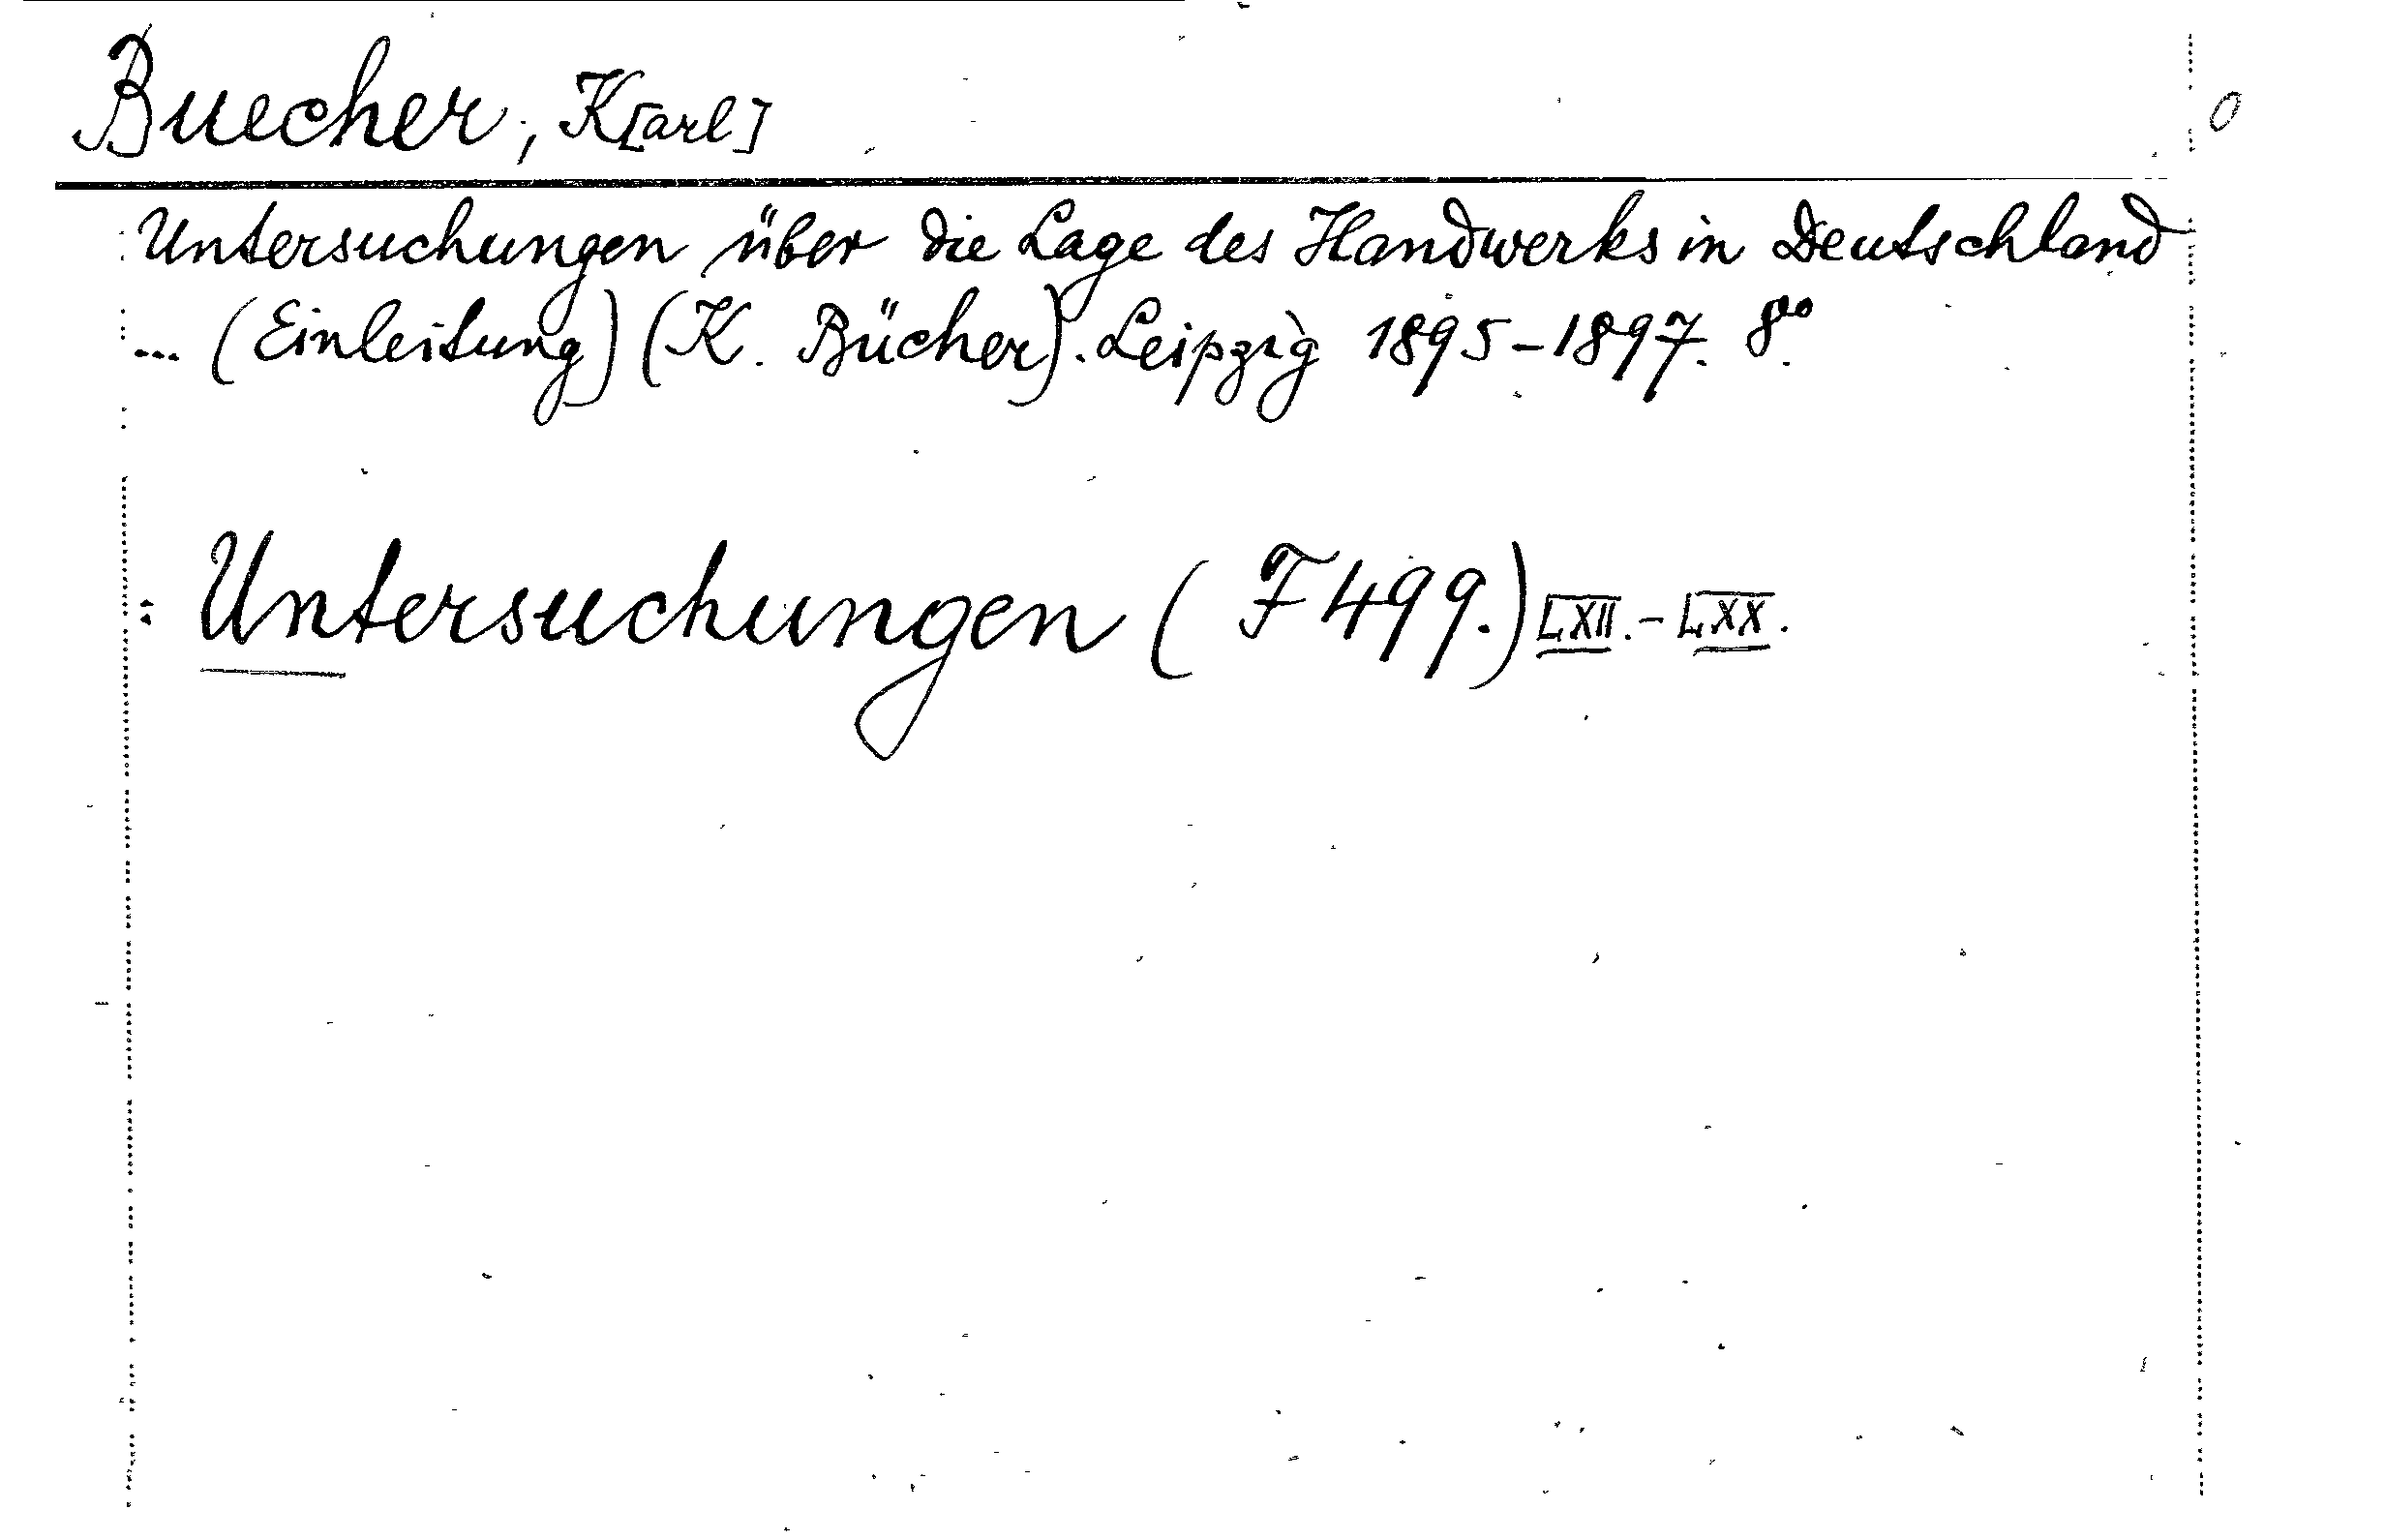 Buecher, K[arl]
0
Untersuchungen über die Lage des Handwerks in Deutschland
... (Einleitung) (K. Bücher). Leipzig 1895-1897. 8°.
: Untersuchungen (F 499.) LXII.-LXX.